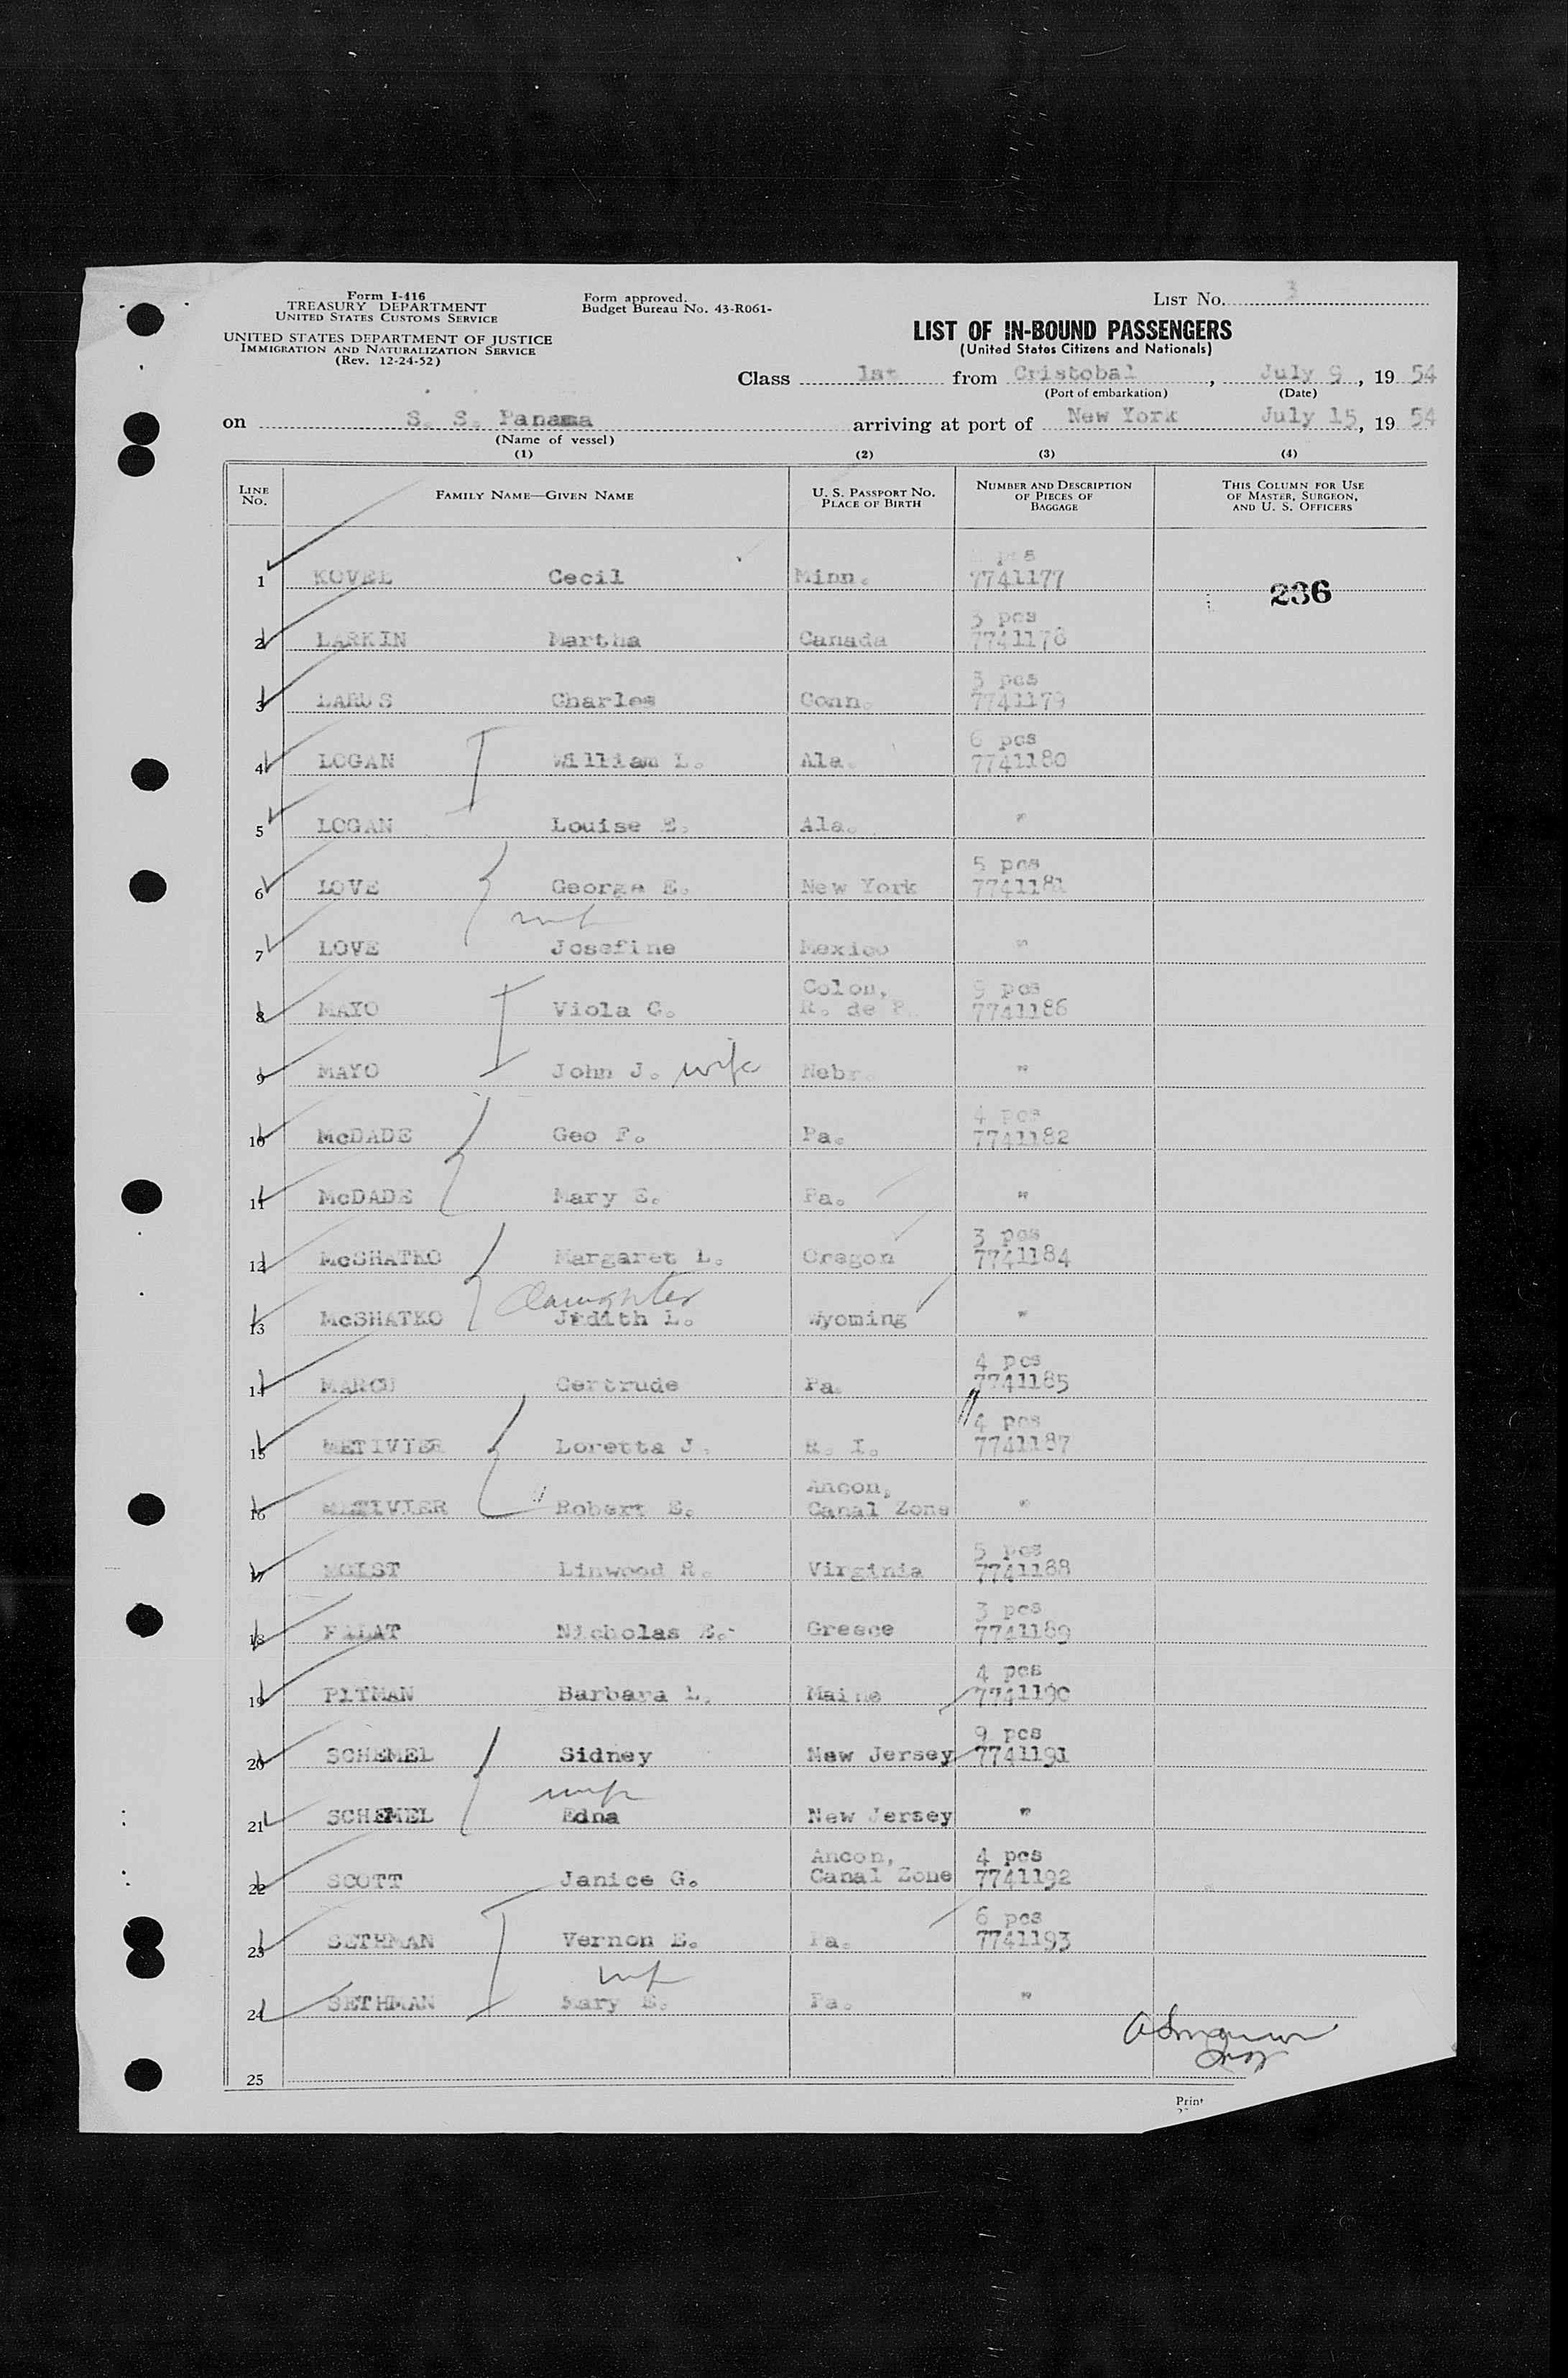 Form I-416
TREASURY DEPARTMENT
UNITED STATES CUSTOMS SERVICE
UNITED STATES DEPARTMENT OF JUSTICE
IMMIGRATION AND NATURALIZATION SERVICE
(Rev. 12-24-52)
Form approved.
Budget Bureau No. 43-R061-
LIST No. 3
LIST OF IN-BOUND PASSENGERS
(United States Citizens and Nationals)
Class 1st from Cristobal, July 9, 19 54
(Port of embarkation) (Date)
on S. S. Panama arriving at port of New York July 15, 19 54
(Name of vessel)
(1) (2) (3) (4)
LINE No. FAMILY NAME—GIVEN NAME U. S. PASSPORT No. PLACE OF BIRTH NUMBER AND DESCRIPTION OF PIECES OF BAGGAGE THIS COLUMN FOR USE OF MASTER, SURGEON, AND U. S. OFFICERS
pcs
1 KOVEL Cecil Minn. 7741177 236
3 pcs
2 LARKIN Martha Canada 7741178
3 pcs
3 LARUS Charles Conn. 7741179
6 pcs
4 LOGAN William L. Ala. 7741180
5 LOGAN Louise E. Ala. "
5 pcs
6 LOVE George E. New York 7741181
wife
7 LOVE Josefine Mexico "
Colon, 9 pcs
8 MAYO Viola G. R. de P. 7741186
9 MAYO John J. wife Nebr. "
4 pcs
10 McDADE Geo F. Pa. 7741182
11 McDADE Mary E. Pa. "
3 pcs
12 McSHATKO Margaret L. Oregon 7741184
daughter
13 McSHATKO Judith L. Wyoming "
4 pcs
14 MARCU Gertrude Pa. 7741185
4 pcs
15 METIVIER Loretta J. R. I. 7741187
Ancon,
16 METIVIER Robert E. Canal Zone "
5 pcs
17 MOLST Linwood R. Virginia 7741188
3 pcs
18 PALAT Nicholas E. Greece 7741189
4 pcs
19 PITMAN Barbara L. Maine 7741190
9 pcs
20 SCHEMEL Sidney New Jersey 7741191
wife
21 SCHEMEL Edna New Jersey "
Ancon, 4 pcs
22 SCOTT Janice G. Canal Zone 7741192
6 pcs
23 SETHMAN Vernon E. Pa. 7741193
wife
24 SETHMAN Mary E. Pa. "
25
Print